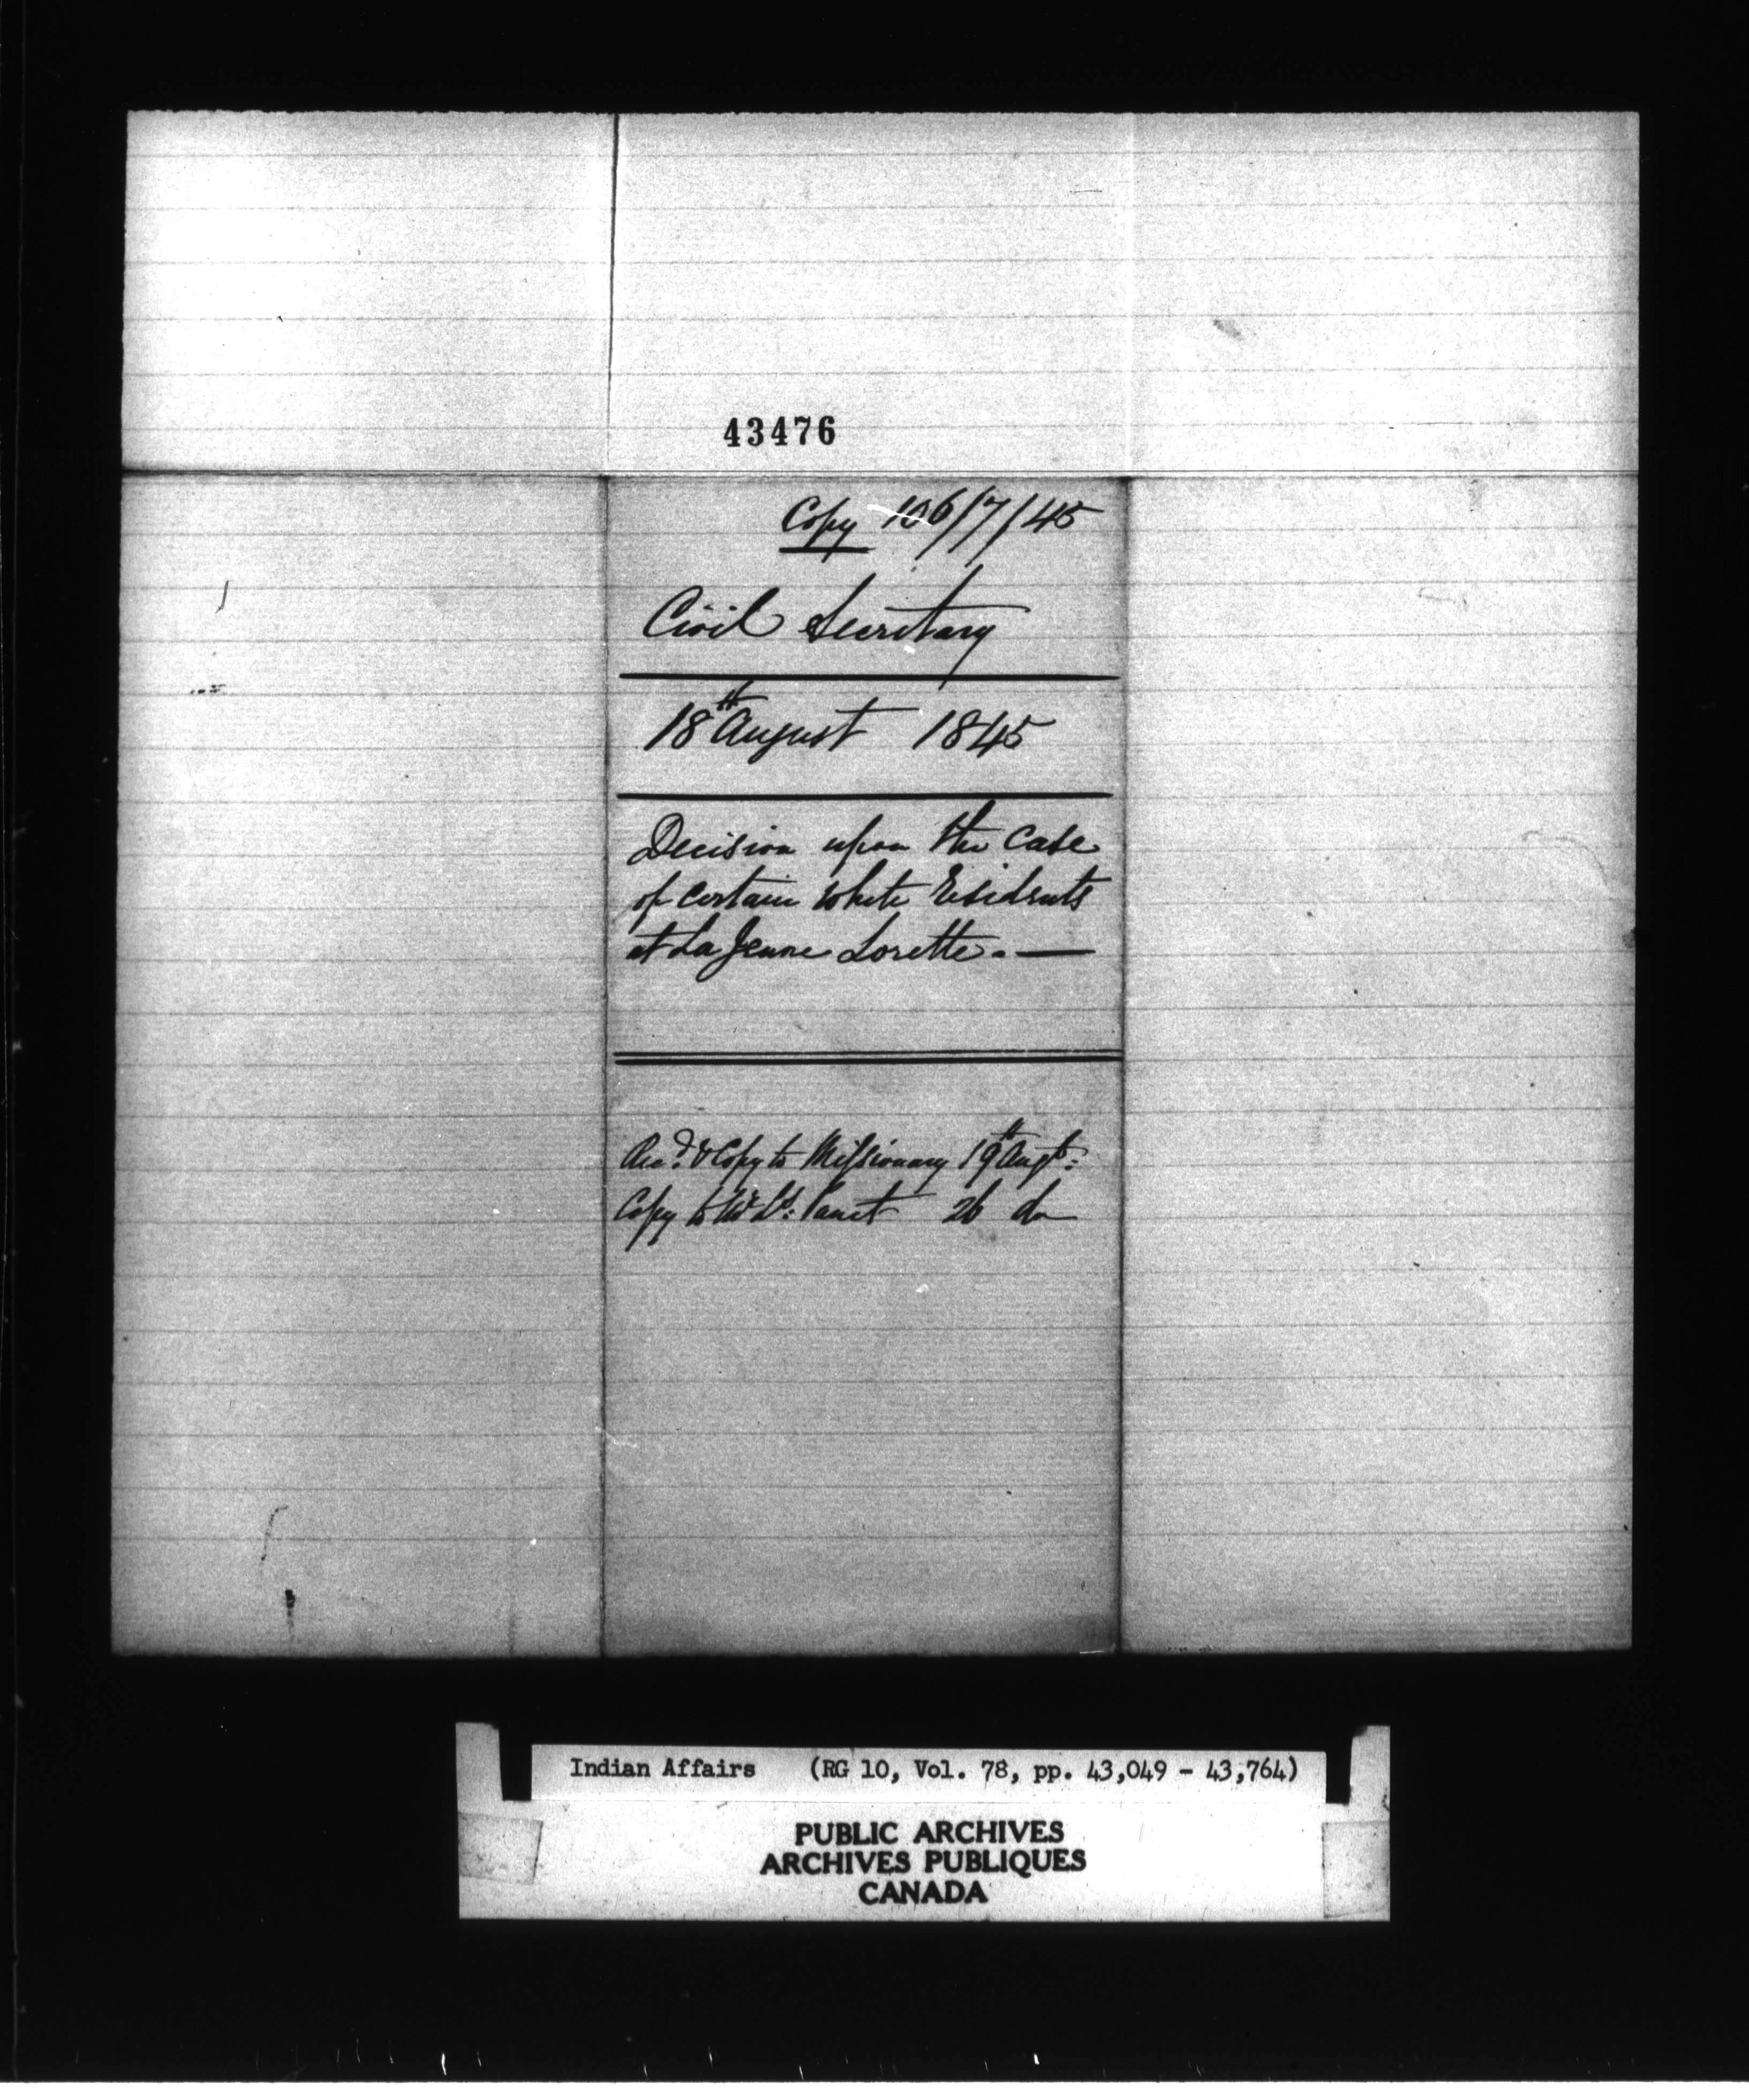 43476
Copy 106/7/45
Civil Secretary
18th August 1845
Decision upon the Case
of certain white Residents
at La Jeune Lorette. —
Recd. & Copy to Missionary 19th Augt:
Copy to Mr Ls: Panet 26 do
Indian Affairs (RG 10, Vol. 78, pp. 43,049 - 43,764)
PUBLIC ARCHIVES
ARCHIVES PUBLIQUES
CANADA